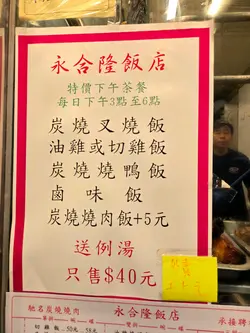 永合隆飯店
特價下午茶餐
每日下午3點至6點
炭燒叉燒飯
油雞或切雞飯
炭燒燒鴨飯
鹵味飯
炭燒燒肉飯+5元
送例湯
只售$40元
馳名炭燒燒肉
永合隆飯店